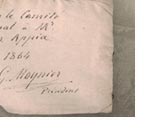 le Comité
al à Mr
Appia
1864
G. Moynier
Président